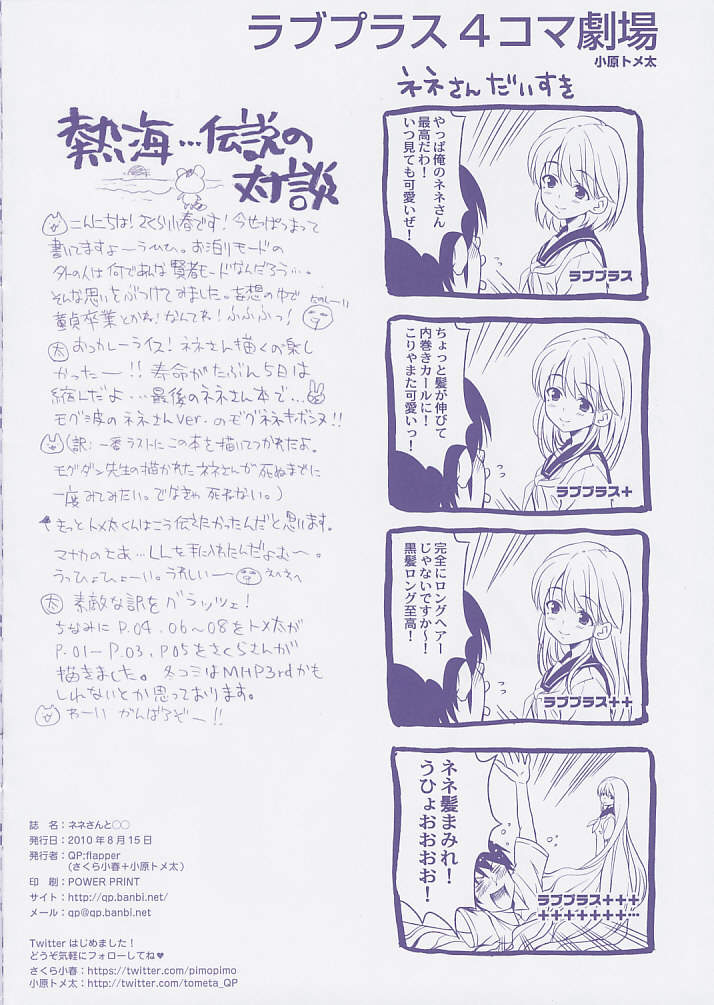 ラブプラス４コマ劇場
小原トメ太
ネネさんだいすき
やっぱ俺のネネさん
最高だわ！
いつ見ても可愛いぜ！
ラブプラス
ちょっと髪が伸びて
内巻きカールに！
こりゃまた可愛いっ！
ラブプラス+
完全にロングヘアー
じゃないですか～！
黒髪ロング至高！
ラブプラス++
ネネ髪まみれ！
うひょおおおおお！
ラブプラス+++
+++++++…
熱海…伝説の
対談
こんにちは！さくら小春です！今せっぱつまって
書いてますよーうひひ。お泊りモードの
外の人は何であんな賢者モードなんだろう…。
そんな思いをぶつけてみました。妄想の中で
童貞卒業とかね！なんてね！ふふふっ！
太 おっカレーライス！ネネさん描くの楽し
かったー!! 寿命がたぶん5日は
縮んだよ…最後のネネさん本で…
モグダン波のネネさんver.のモグネネキボンヌ!!
(訳：一番ラストにこの本を描いてつかれたよ。
モグダン先生の描かれたネネさんが死ぬまでに
一度みてみたい。でなきゃ死ねない。)
きっとトメ太くんはこう伝えたかったんだと思います。
マナカのとあ…LLを手に入れたんだよむ～。
うっひょひょーい。うれしいー
太 素敵な訳をグラッツェ！
ちなみにP.04、06～08をトメ太が
P.01-P.03、P05をさくらさんが
描きました。冬コミはMHP3rdかも
しれないとか思っております。
わーい がんばるぞー!!
誌　名：ネネさんと○○
発行日：2010年8月15日
発行者：QP:flapper
（さくら小春＋小原トメ太）
印　刷：POWER PRINT
サイト：http://qp.banbi.net/
メール：qp@qp.banbi.net
Twitterはじめました！
どうぞ気軽にフォローしてね♥
さくら小春：https://twitter.com/pimopimo
小原トメ太：http://twitter.com/tometa_QP